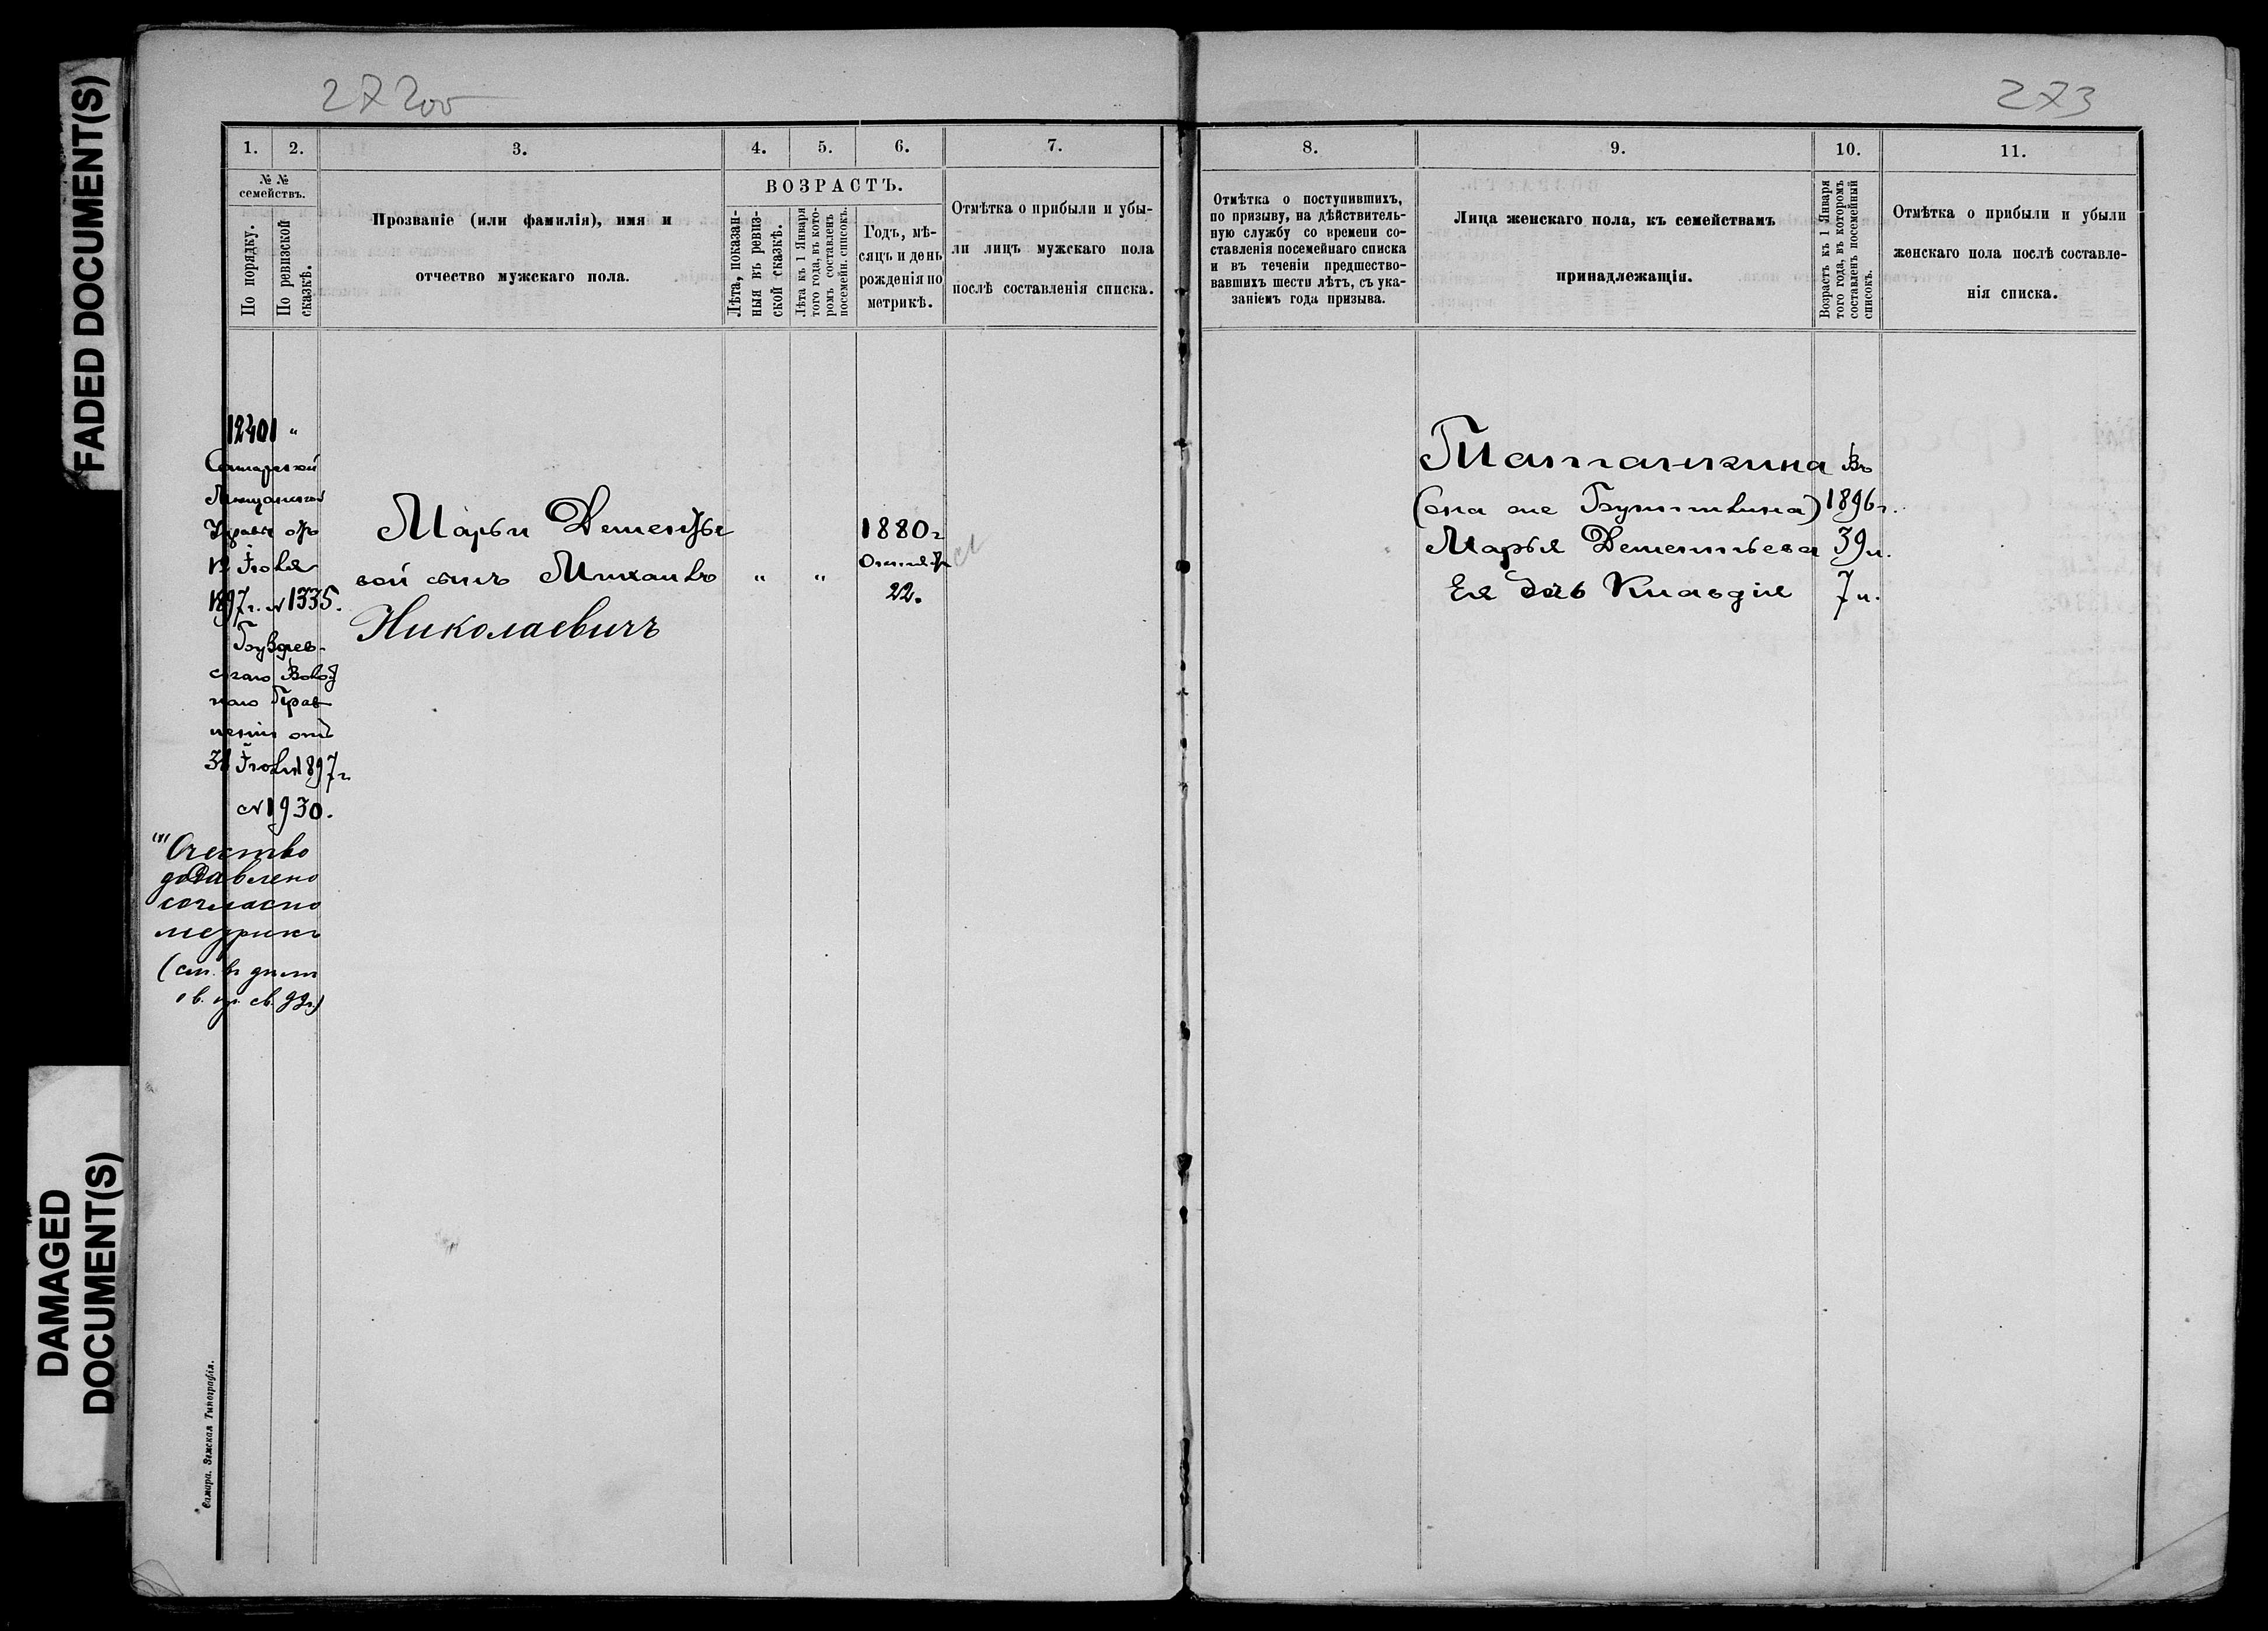 FADED DOCUMENT(S)
DAMAGED
DOCUMENT(S)
273
1.
2.
3.
4.
5.
6.
7.
№ №
семействъ.
По порядку.
По ревизской
сказкѣ.
Прозваніе (или фамилія), имя и
отчество мужскаго пола.
ВОЗРАСТЪ.
Лѣта, показан-
ныя въ ревиз-
ской сказкѣ.
Лѣта къ 1 Января
того года, въ кото-
ромъ составленъ
посемейн. списокъ.
Годъ, мѣ-
сяцъ и день
рожденія по
метрикѣ.
Отмѣтка о прибыли и убы-
ли лицъ мужскаго пола
послѣ составленія списка.
12401 "
Самарской
Мѣщанской
Управы отъ
12 Іюля
1897г. № 1335.
скаго Волост
наго Прав
ленія отъ
31 Іюля 1897г.
№ 1930.
Отчество
добавлено
согласно
метрики
Марьи Дементье
вой сынъ Михаилъ " "
Николаевичъ
1880г.
Октября
22.
Самара. Земская Типографія.
8.
9.
10.
11.
Отмѣтка о поступившихъ,
по призыву, на дѣйствитель-
ную службу со времени со-
ставленія посемейнаго списка
и въ теченіи предшество-
вавшихъ шести лѣтъ, съ ука-
заніемъ года призыва.
Лица женскаго пола, къ семействамъ
принадлежащія.
Возрастъ къ 1 Января
того года, въ которомъ
составленъ посемейный
списокъ.
Отмѣтка о прибыли и убыли
женскаго пола послѣ составле-
нія списка.
Въ
(она же 1896г.
Марья Дементьева 39л.
Ея дочь Клавдія 7л.